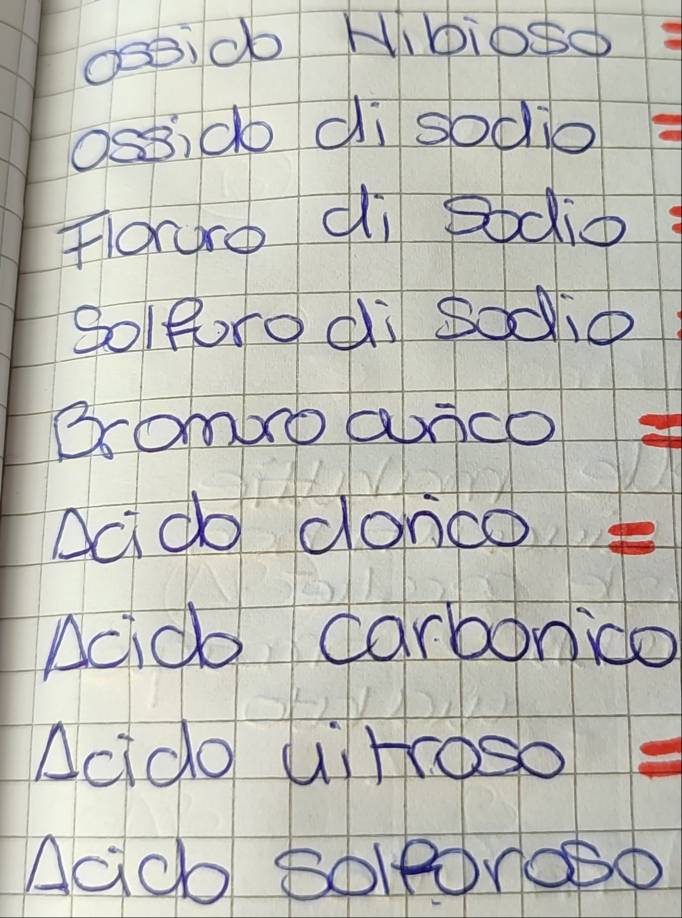 ossido Nibioso =
ossido di sodio =
Floruro di Sodio =
Solfuro di sodio =
Bromuro aurico =
Acido clorico =
Acido carbonico
Acido nitroso =
Acido solforoso